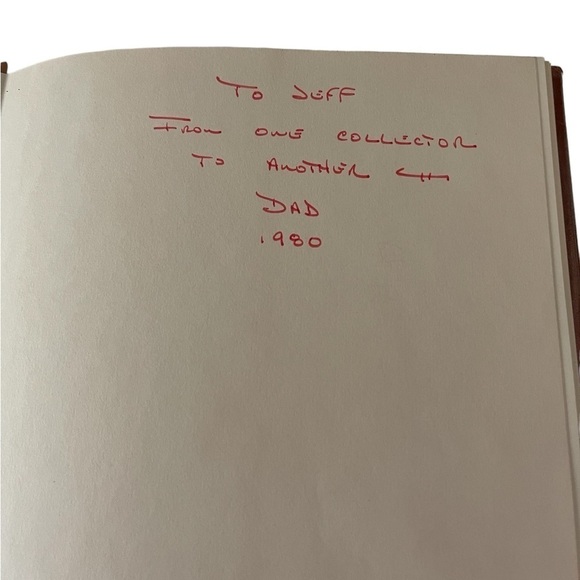 To JEFF
From ONE COLLECTOR
TO ANOTHER
DAD
1980